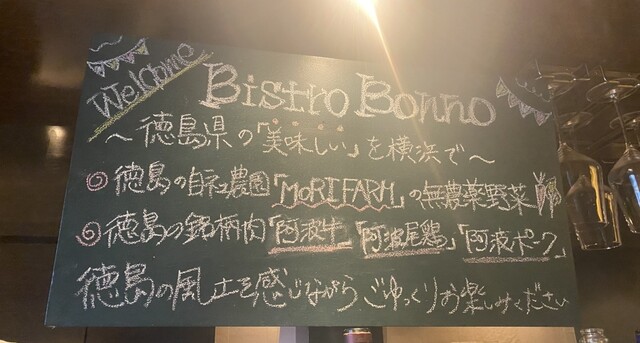 Welcome
Bistro Bonno
～徳島県の「美味しい」を横浜で～
徳島の自社農園「MORI FARM」の無農薬野菜
徳島の銘柄肉「阿波牛」「阿波尾鶏」「阿波ポーク」
徳島の風土を感じながらごゆっくりお楽しみください